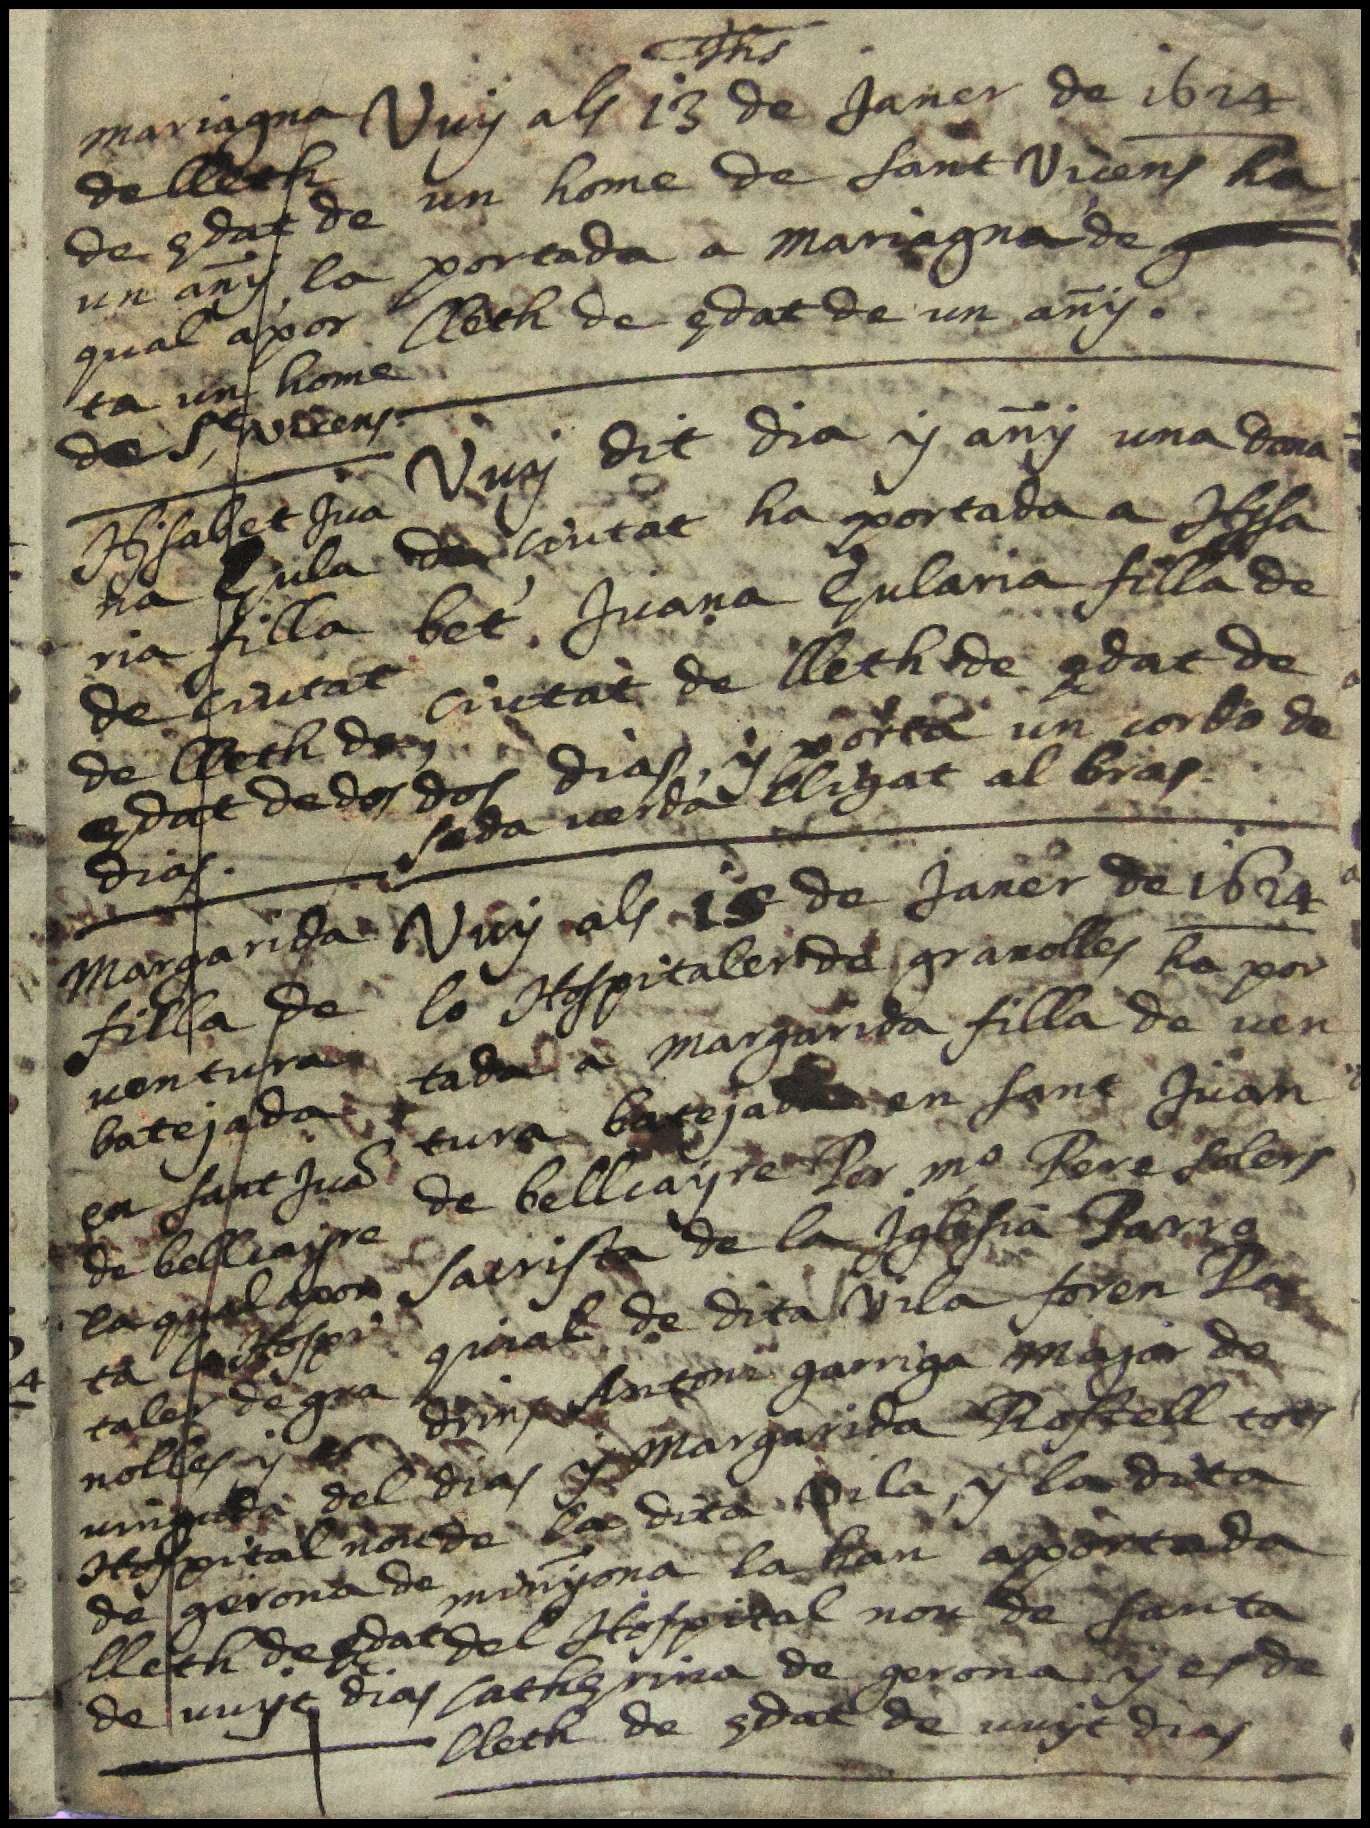 Jhs
mariagna
de lleth
de edat de
un añy, la
qual apor
ta un home
de St, Vicens.
Vuy als 13 de Janer de 1624
un home de sant Vicens ha
portada a mariagna de
lleth de edat de un añy.
Hysabet Jua
na Eula
ria filla
de ciutat
de lleth de
edat de dos
dias.
Vuy dit dia y añy una dona
de ciutat ha portada a Hysa
bet, Juana Eularia filla de
ciutat de lleth de edat de
dos dias, y porta un cordo de
seda verda lligat al bras.
Margarida
filla de
ventura
batejada
en sant Juã
de bellcayre
la qual apor
ta lo Hospi
taler de gra
nolles y es
vinguda del
Hospital nou
de gerona de
lleth de edat
de vuyt dias
Vuy als 15 de Janer de 1624
lo Hospitaler de granolles ha por
tada a margarida filla de ven
tura batejada en sant Juan
de bellcayre Per mº Pere solers
sacrista de la Iglesia Parro
quial de dita Vila foren Pa
drins Antoni garriga major de
dias y Margarida Rostell tots
de la dita Vila, y la dita
minyona la han aportada
del Hospital nou de santa
catherina de gerona y es de
lleth de edat de vuyt dias